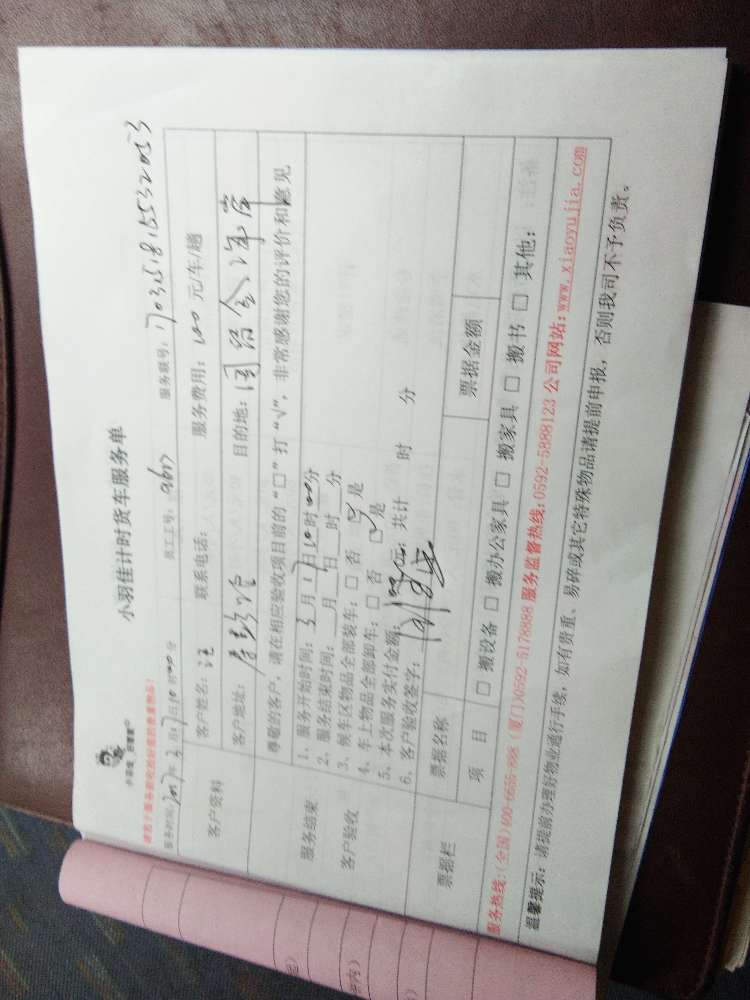 小羽佳计时货车服务单
小羽佳 好管家
服务时间: 2017年3月17日10时00分 员工工号: 服务联号:
客户资料
客户姓名: 汪 联系电话: 服务费用: 100 元/车/趟
客户地址: 目的地:
尊敬的客户，请在相应验收项目前的“□”打“√”，非常感谢您的评价和意见
服务结束
客户验收
1、服务开始时间: 3月17日10时00分
2、服务结束时间: 月 日 时 分
3、候车区物品全部装车: □ 否 ☑ 是
4、车上物品全部卸车: □ 否 ☑ 是
5、本次服务实付金额: 元; 共计 时 分
6、客户验收签字:
票据栏
票据名称 票据金额
项 目 □ 搬设备 □ 搬办公家具 □ 搬家具 □ 搬书 □ 其他:
服务热线:(全国)400-6655-888 (厦门)0592-5178888 服务监督热线:0592-5888123 公司网站:www.xiaoyujia.com
温馨提示: 请提前办理好物业通行手续，如有贵重、易碎或其它特殊物品请提前申报，否则我司不予负责。